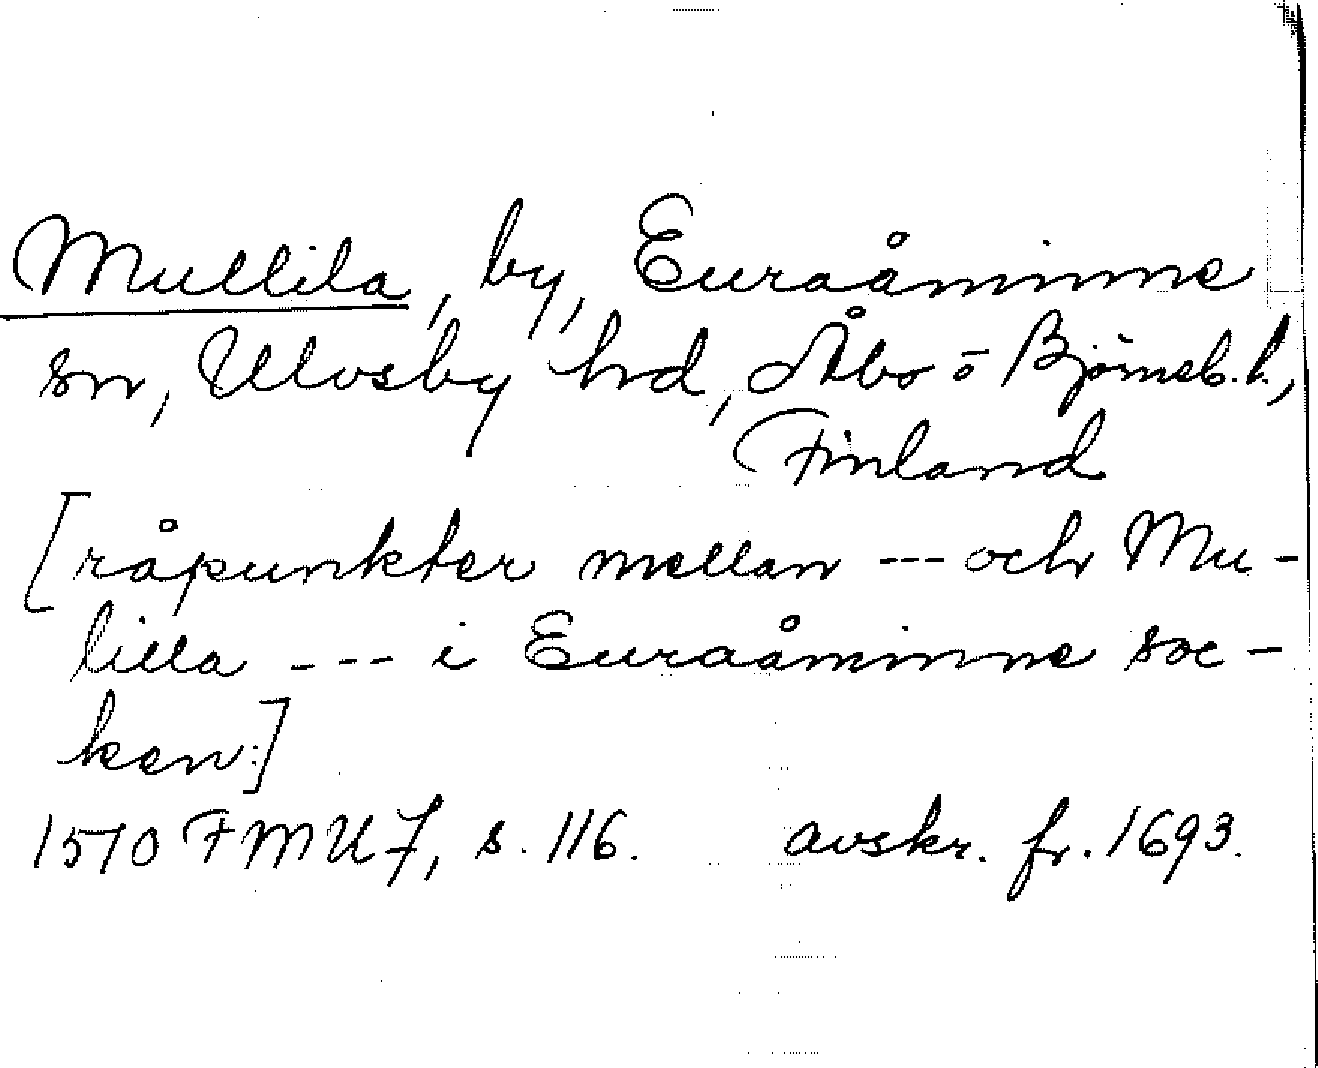 Mullila, by, Euraåminne
sn, Ulvsby hrd, Åbo o Björneb. l.,
Finland
[råpunkter mellan --- och Mu-
lilla --- i Euraåminne soc-
ken:]
1570 FMU 7, s. 116. avskr. fr. 1693.